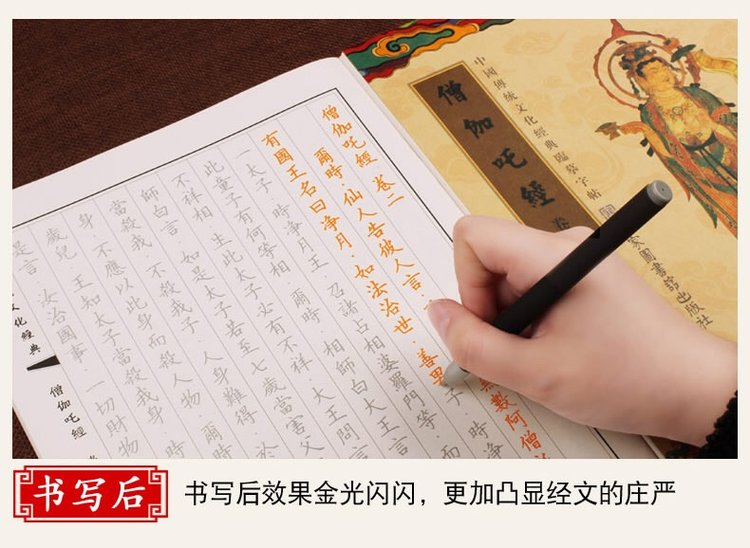 中國傳統文化經典臨摹字帖
僧伽吒經 卷
家圖書館出版社
僧伽吒經 卷二
爾時·仙人告彼人言·
無數阿僧
有國王名曰淨月·如法治世·善男子·時淨
一太子 時淨月王·召諸占相婆羅門等·而
此童子有何等相·爾時·相師白大王言
不祥相·生此太子必有不祥·大王問
師白言·如是太子若至七歲當害父
當殺我·不殺我子·人身難得·於
身·不應以此身而殺人物·爾時
歲兒·王知太子當殺我身·時
是言·汝治國事·一切財物
文化經典
僧伽吒經
书写后
书写后效果金光闪闪，更加凸显经文的庄严